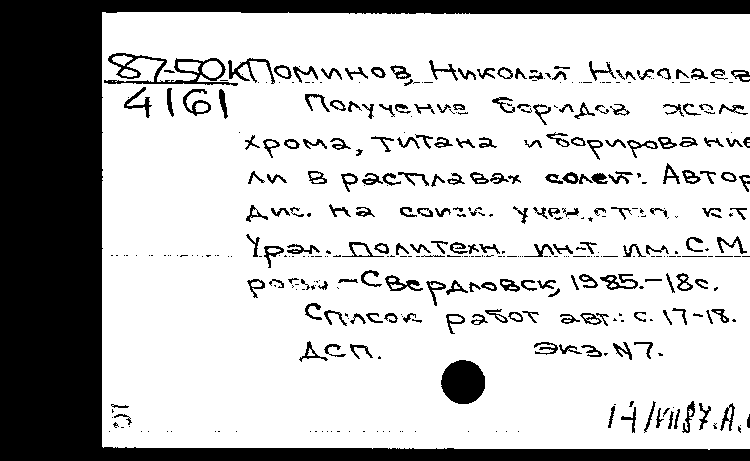 87-50К Поминов, Николай Николаев
4161 Получение боридов желе
хрома, титана и борирование
ли в расплавах солей: Автор
дис. на соиск. учен. степ. к.т
Урал. политехн. ин-т им. С.М
рова. - Свердловск, 1985. - 18с.
Список работ авт.: с. 17-18.
ДСП. Экз. N7.
5 14/VII87.А.